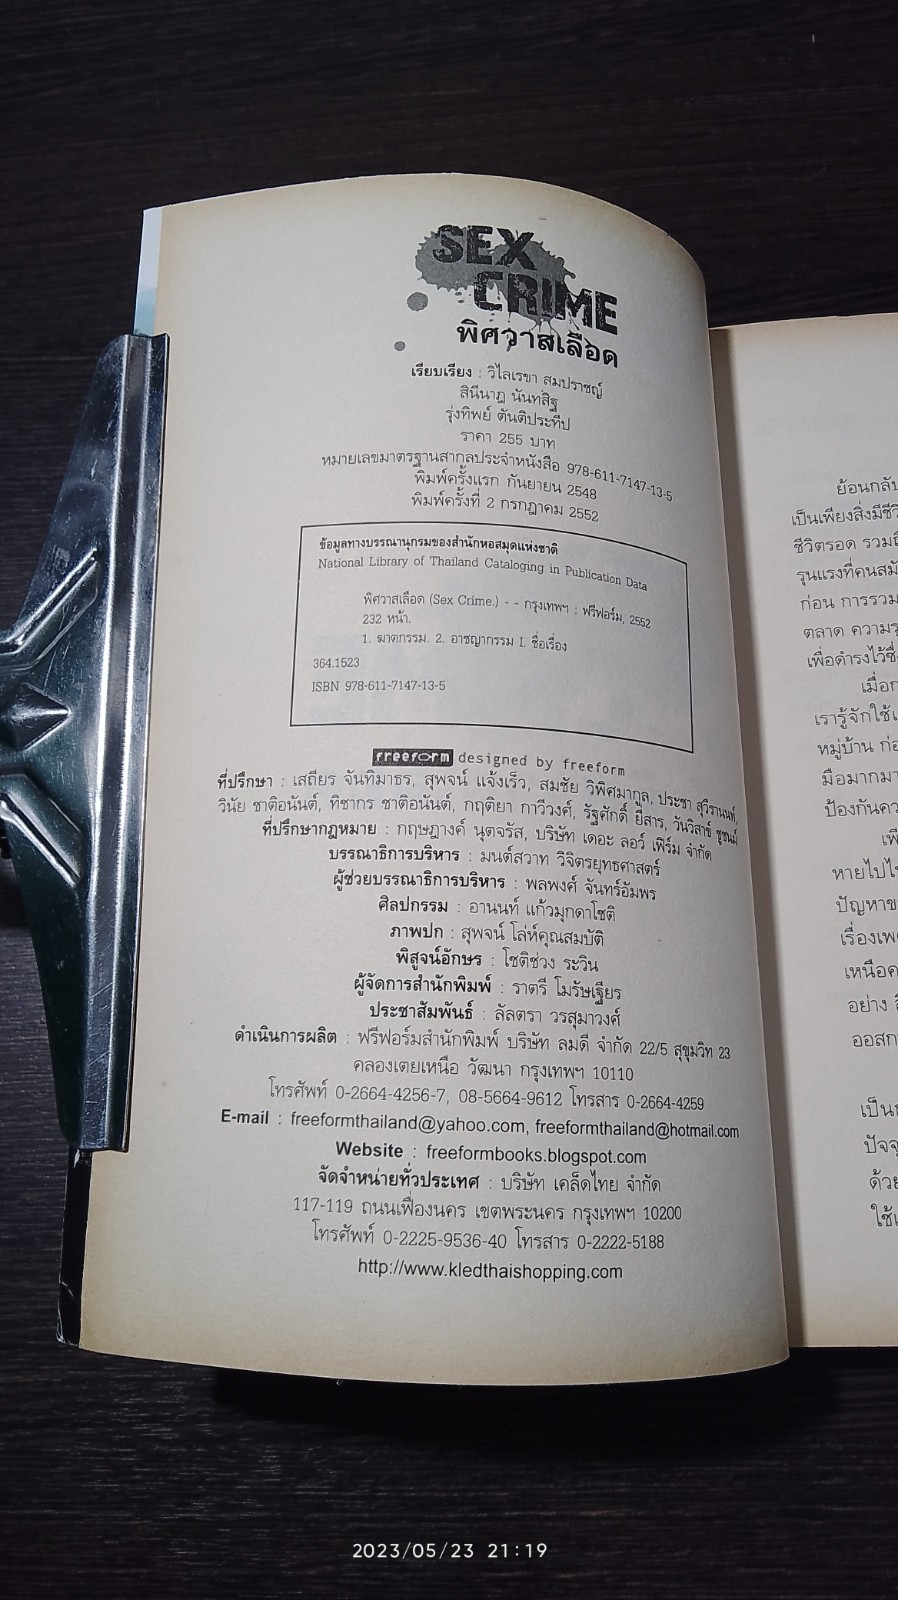 SEX
CRIME
พิศวาสเลือด
เรียบเรียง : วิไลเรขา สมปราชญ์
สินีนาฏ นันทสิฐ
รุ่งทิพย์ ตันติประทีป
ราคา 255 บาท
หมายเลขมาตรฐานสากลประจำหนังสือ 978-611-7147-13-5
พิมพ์ครั้งแรก กันยายน 2548
พิมพ์ครั้งที่ 2 กรกฎาคม 2552
ข้อมูลทางบรรณานุกรมของสำนักหอสมุดแห่งชาติ
National Library of Thailand Cataloging in Publication Data
พิศวาสเลือด (Sex Crime.) - - กรุงเทพฯ : ฟรีฟอร์ม, 2552
232 หน้า.
1. ฆาตกรรม. 2. อาชญากรรม I. ชื่อเรื่อง
364.1523
ISBN 978-611-7147-13-5
freeform designed by freeform
ที่ปรึกษา : เสถียร จันทิมาธร, สุพจน์ แจ้งเร็ว, สมชัย วิพิศมากูล, ประชา สุวีรานนท์,
วินัย ชาติอนันต์, ทิชากร ชาติอนันต์, กฤติยา กาวีวงศ์, รัฐศักดิ์ ยีสาร, วันวิสาข์ ชูชนม์
ที่ปรึกษากฎหมาย : กฤษฎางค์ นุตจรัส, บริษัท เดอะ ลอว์ เฟิร์ม จำกัด
บรรณาธิการบริหาร : มนต์สวาท วิจิตรยุทธศาสตร์
ผู้ช่วยบรรณาธิการบริหาร : พลพงศ์ จันทร์อัมพร
ศิลปกรรม : อานนท์ แก้วมุกดาโชติ
ภาพปก : สุพจน์ โล่ห์คุณสมบัติ
พิสูจน์อักษร : โชติช่วง ระวิน
ผู้จัดการสำนักพิมพ์ : ราตรี โมรัษเฐียร
ประชาสัมพันธ์ : ลัลตรา วรสุมาวงศ์
ดำเนินการผลิต : ฟรีฟอร์มสำนักพิมพ์ บริษัท ลมดี จำกัด 22/5 สุขุมวิท 23
คลองเตยเหนือ วัฒนา กรุงเทพฯ 10110
โทรศัพท์ 0-2664-4256-7, 08-5664-9612 โทรสาร 0-2664-4259
E-mail : freeformthailand@yahoo.com, freeformthailand@hotmail.com
Website : freeformbooks.blogspot.com
จัดจำหน่ายทั่วประเทศ : บริษัท เคล็ดไทย จำกัด
117-119 ถนนเฟื่องนคร เขตพระนคร กรุงเทพฯ 10200
โทรศัพท์ 0-2225-9536-40 โทรสาร 0-2222-5188
http://www.kledthaishopping.com
ย้อนกลับ
เป็นเพียงสิ่งมีชีวิ
ชีวิตรอด รวมถึ
รุนแรงที่คนสมั
ก่อน การรวม
ตลาด ความรุ
เพื่อดำรงไว้ซึ่
เมื่อก
เรารู้จักใช้เ
หมู่บ้าน ก่อ
มือมากมา
ป้องกันคว
เพี
หายไปไ
ปัญหาข
เรื่องเพ
เหนือค
อย่าง
ออสก
เป็น
ปัจจุ
ด้วย
ใช้เ
2023/05/23 21:19